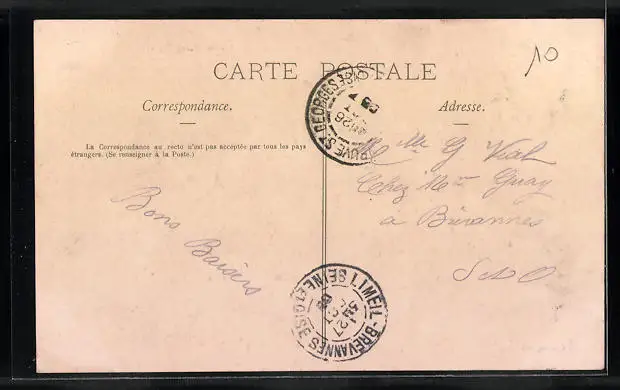 10
CARTE POSTALE
Correspondance.
Adresse.
La Correspondance au recto n'est pas acceptée par tous les pays
étrangers. (Se renseigner à la Poste.)
Bons
Baisers
Mlle G Vial
Chez Mme Guay
à Brévannes
S & O
VILLENEUVE ST GEORGES
LIMEIL-BREVANNES
SEINE-ET-OISE